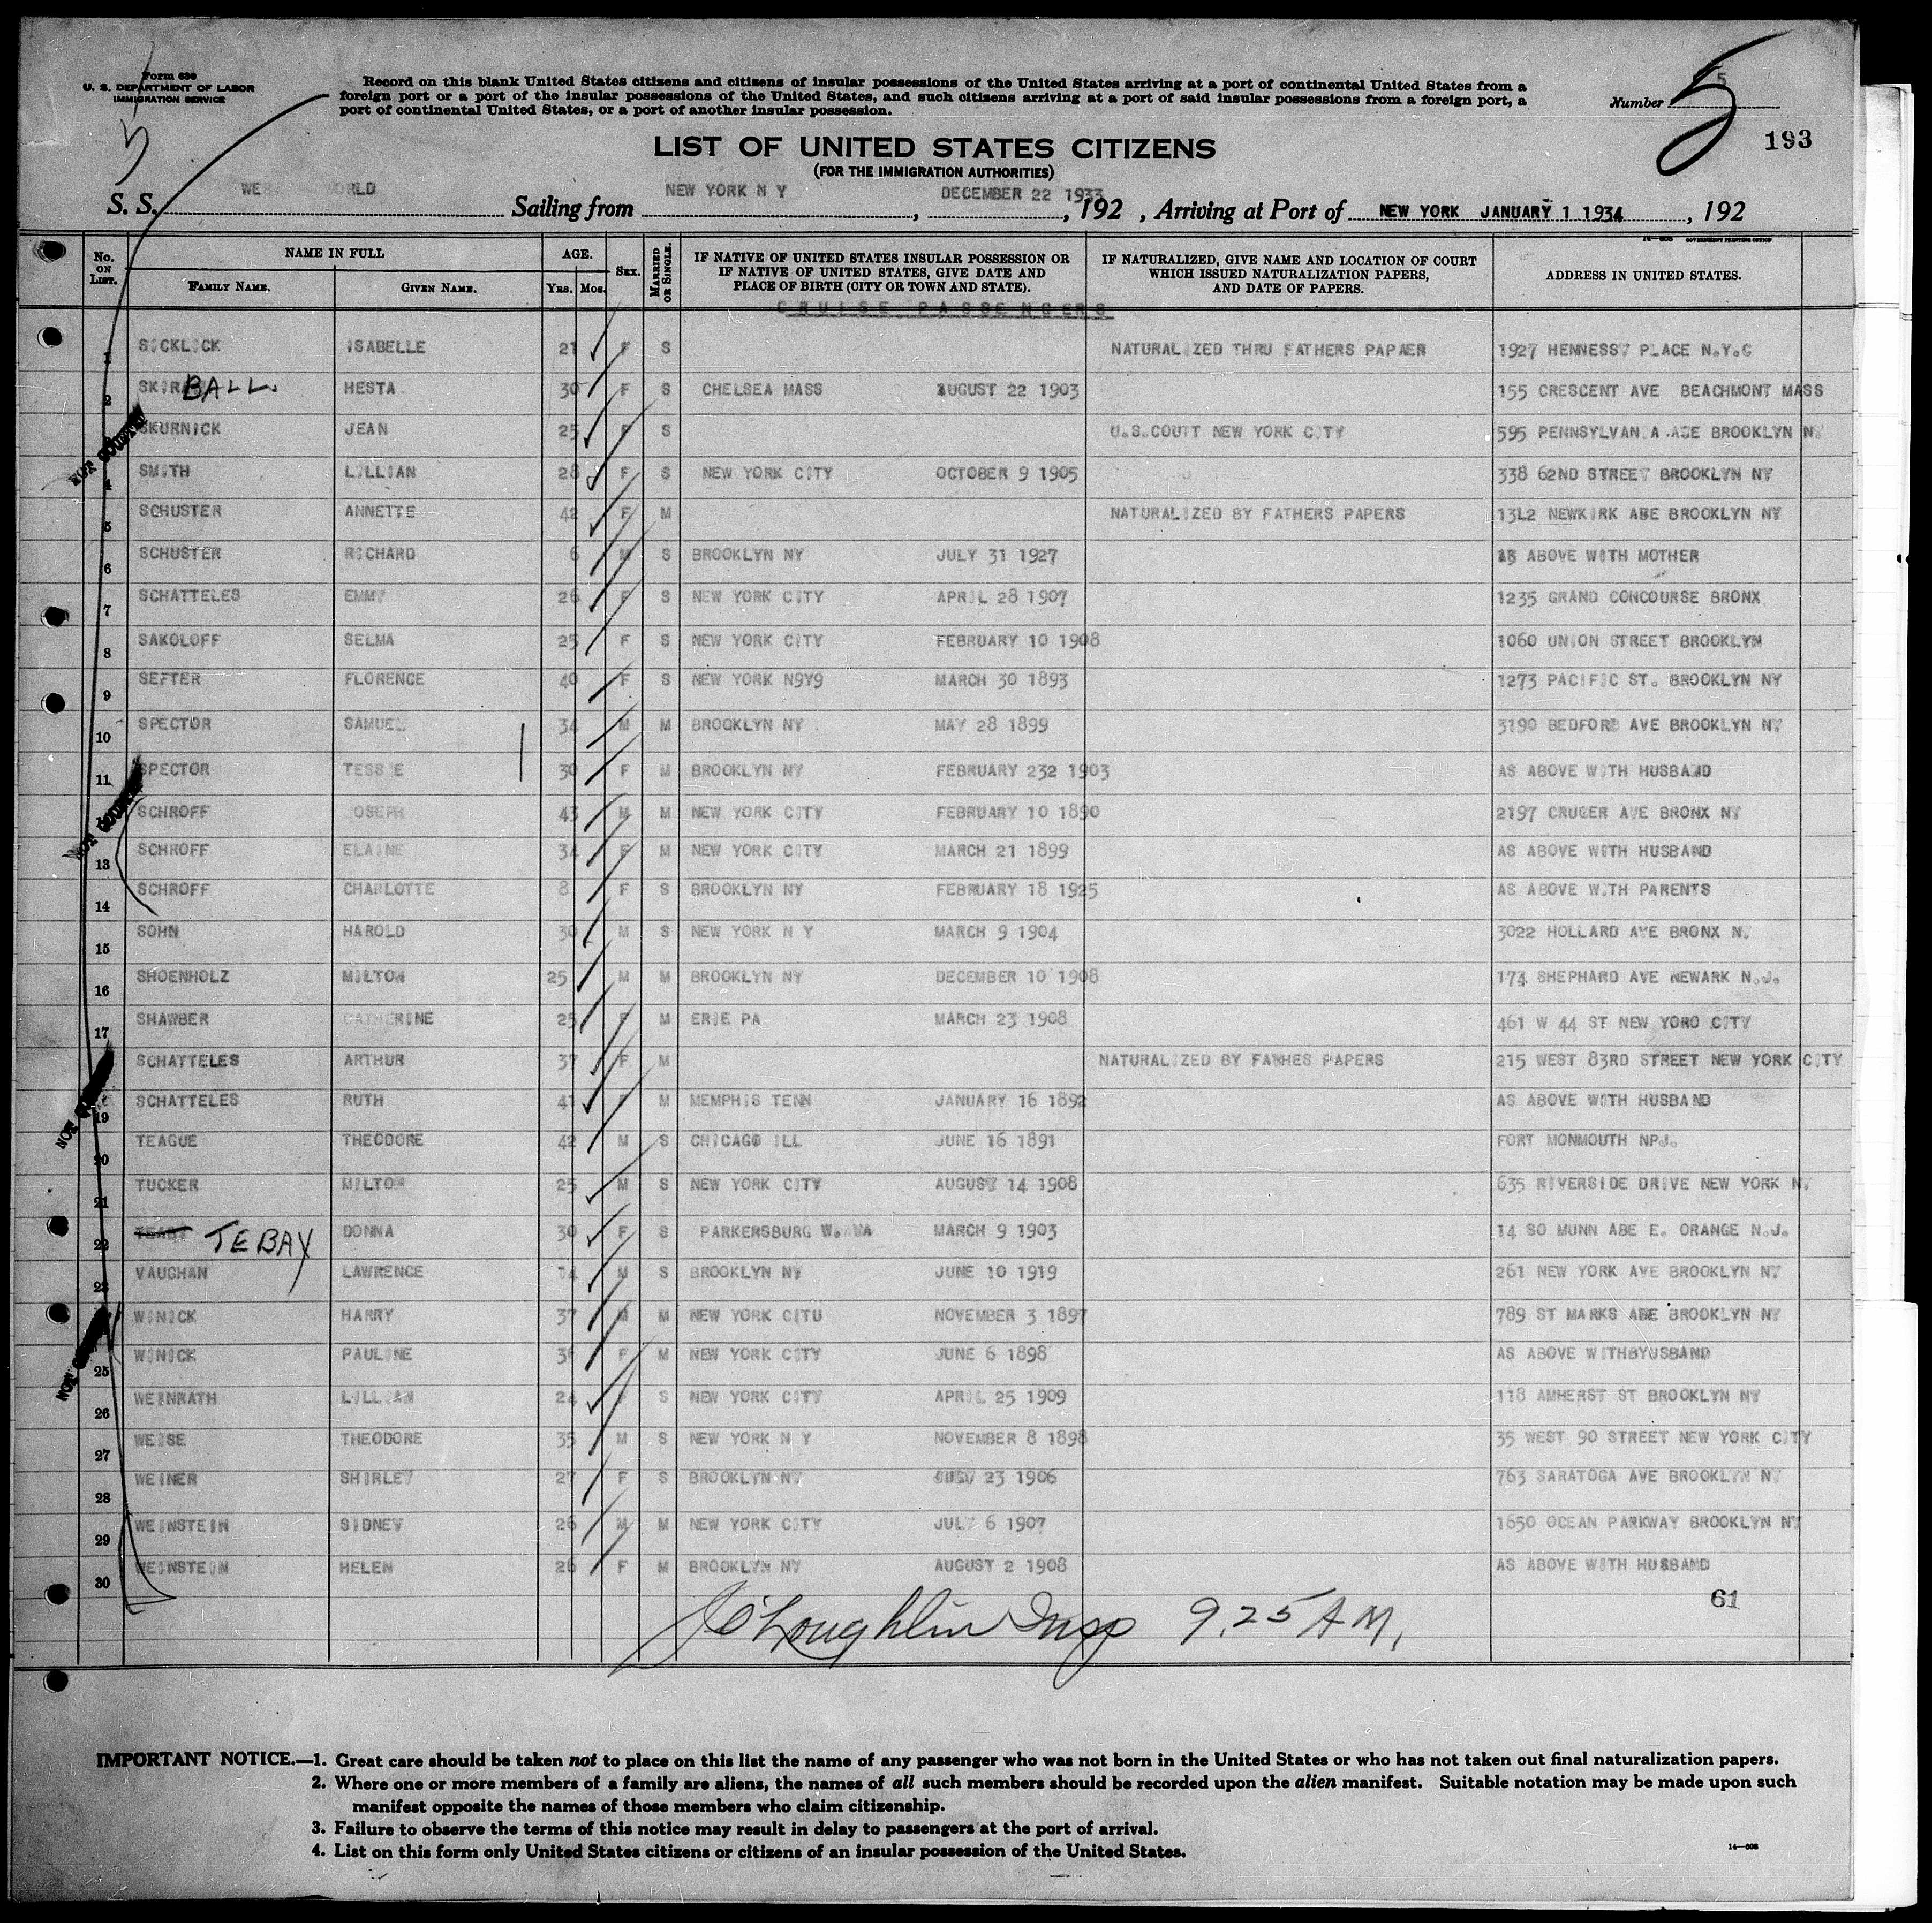 Form 630
U. S. DEPARTMENT OF LABOR
IMMIGRATION SERVICE
Record on this blank United States citizens and citizens of insular possessions of the United States arriving at a port of continental United States from a
foreign port or a port of the insular possessions of the United States, and such citizens arriving at a port of said insular possessions from a foreign port, a
port of continental United States, or a port of another insular possession.
Number 5
5
5
193
LIST OF UNITED STATES CITIZENS
(FOR THE IMMIGRATION AUTHORITIES)
S. S. WE ORLD Sailing from NEW YORK N Y, DECEMBER 22 1933, 192 , Arriving at Port of NEW YORK JANUARY 1 1934, 192
14—608 GOVERNMENT PRINTING OFFICE
No. ON LIST. NAME IN FULL FAMILY NAME. GIVEN NAME. AGE. Yrs. Mos. SEX. MARRIED OR SINGLE. IF NATIVE OF UNITED STATES INSULAR POSSESSION OR IF NATIVE OF UNITED STATES, GIVE DATE AND PLACE OF BIRTH (CITY OR TOWN AND STATE). IF NATURALIZED, GIVE NAME AND LOCATION OF COURT WHICH ISSUED NATURALIZATION PAPERS, AND DATE OF PAPERS. ADDRESS IN UNITED STATES.
CRUISE PASSENGERS
1 SICKLICK ISABELLE 21 F S NATURALIZED THRU FATHERS PAPAER 1927 HENNESSY PLACE N.Y.C
2 SKIR BALL. HESTA 30 F S CHELSEA MASS AUGUST 22 1903 155 CRESCENT AVE BEACHMONT MASS
SKURNICK JEAN 25 F S U.S.COUTT NEW YORK CITY 595 PENNSYLVANIA AZE BROOKLYN NY
4 SMITH LILLIAN 28 F S NEW YORK CITY OCTOBER 9 1905 338 62ND STREET BROOKLYN NY
5 SCHUSTER ANNETTE 42 F M NATURALIZED BY FATHERS PAPERS 13L2 NEWKIRK ABE BROOKLYN NY
6 SCHUSTER RICHARD 6 M S BROOKLYN NY JULY 31 1927 AS ABOVE WITH MOTHER
7 SCHATTELES EMMY 26 F S NEW YORK CITY APRIL 28 1907 1235 GRAND CONCOURSE BRONX
8 SAKOLOFF SELMA 25 F S NEW YORK CITY FEBRUARY 10 1908 1060 UNION STREET BROOKLYN
9 SEFTER FLORENCE 40 F S NEW YORK N9Y9 MARCH 30 1893 1273 PACIFIC ST. BROOKLYN NY
10 SPECTOR SAMUEL 34 M M BROOKLYN NY MAY 28 1899 3190 BEDFORD AVE BROOKLYN NY
11 SPECTOR TESSIE 30 F M BROOKLYN NY FEBRUARY 232 1903 AS ABOVE WITH HUSBAND
SCHROFF JOSEPH 43 M M NEW YORK CITY FEBRUARY 10 1890 2197 CRUGER AVE BRONX NY
13 SCHROFF ELAINE 34 F M NEW YORK CITY MARCH 21 1899 AS ABOVE WITH HUSBAND
14 SCHROFF CHARLOTTE 8 F S BROOKLYN NY FEBRUARY 18 1925 AS ABOVE WITH PARENTS
15 SOHN HAROLD 30 M S NEW YORK N Y MARCH 9 1904 3022 HOLLARD AVE BRONX NY
16 SHOENHOLZ MILTON 25 M M BROOKLYN NY DECEMBER 10 1908 174 SHEPHARD AVE NEWARK N.J.
17 SHAWBER CATHERINE 25 F M ERIE PA MARCH 23 1908 461 W 44 ST NEW YORO CITY
SCHATTELES ARTHUR 37 F M NATURALIZED BY FAWHES PAPERS 215 WEST 83RD STREET NEW YORK CITY
19 SCHATTELES RUTH 41 F M MEMPHIS TENN JANUARY 16 1892 AS ABOVE WITH HUSBAND
20 TEAGUE THEODORE 42 M S CHICAGO ILL JUNE 16 1891 FORT MONMOUTH NPJ.
21 TUCKER MILTON 25 M S NEW YORK CITY AUGUST 14 1908 635 RIVERSIDE DRIVE NEW YORK NY
22 TEBAY DONNA 30 F S PARKERSBURG W. VA MARCH 9 1903 14 SO MUNN ABE E. ORANGE N.J.
23 VAUGHAN LAWRENCE 14 M S BROOKLYN NY JUNE 10 1919 261 NEW YORK AVE BROOKLYN NY
WINICK HARRY 37 M M NEW YORK CITU NOVEMBER 3 1897 789 ST MARKS ABE BROOKLYN NY
25 WINICK PAULINE 36 F M NEW YORK CITY JUNE 6 1898 AS ABOVE WITHBYUSBAND
26 WEINRATH LILLIAN 24 F S NEW YORK CITY APRIL 25 1909 118 AMHERST ST BROOKLYN NY
27 WEISE THEODORE 35 M S NEW YORK N Y NOVEMBER 8 1898 35 WEST 90 STREET NEW YORK CITY
28 WEINER SHIRLEY 27 F S BROOKLYN NY JULY 23 1906 763 SARATOGA AVE BROOKLYN NY
29 WEINSTEIN SIDNEY 26 M M NEW YORK CITY JULY 6 1907 1650 OCEAN PARKWAY BROOKLYN NY
30 WEINSTEIN HELEN 26 F M BROOKLYN NY AUGUST 2 1908 AS ABOVE WITH HUSBAND
61
J O'Loughlin Insp 9.25 AM.
IMPORTANT NOTICE.—1. Great care should be taken not to place on this list the name of any passenger who was not born in the United States or who has not taken out final naturalization papers.
2. Where one or more members of a family are aliens, the names of all such members should be recorded upon the alien manifest. Suitable notation may be made upon such
manifest opposite the names of those members who claim citizenship.
3. Failure to observe the terms of this notice may result in delay to passengers at the port of arrival.
4. List on this form only United States citizens or citizens of an insular possession of the United States.
14—608